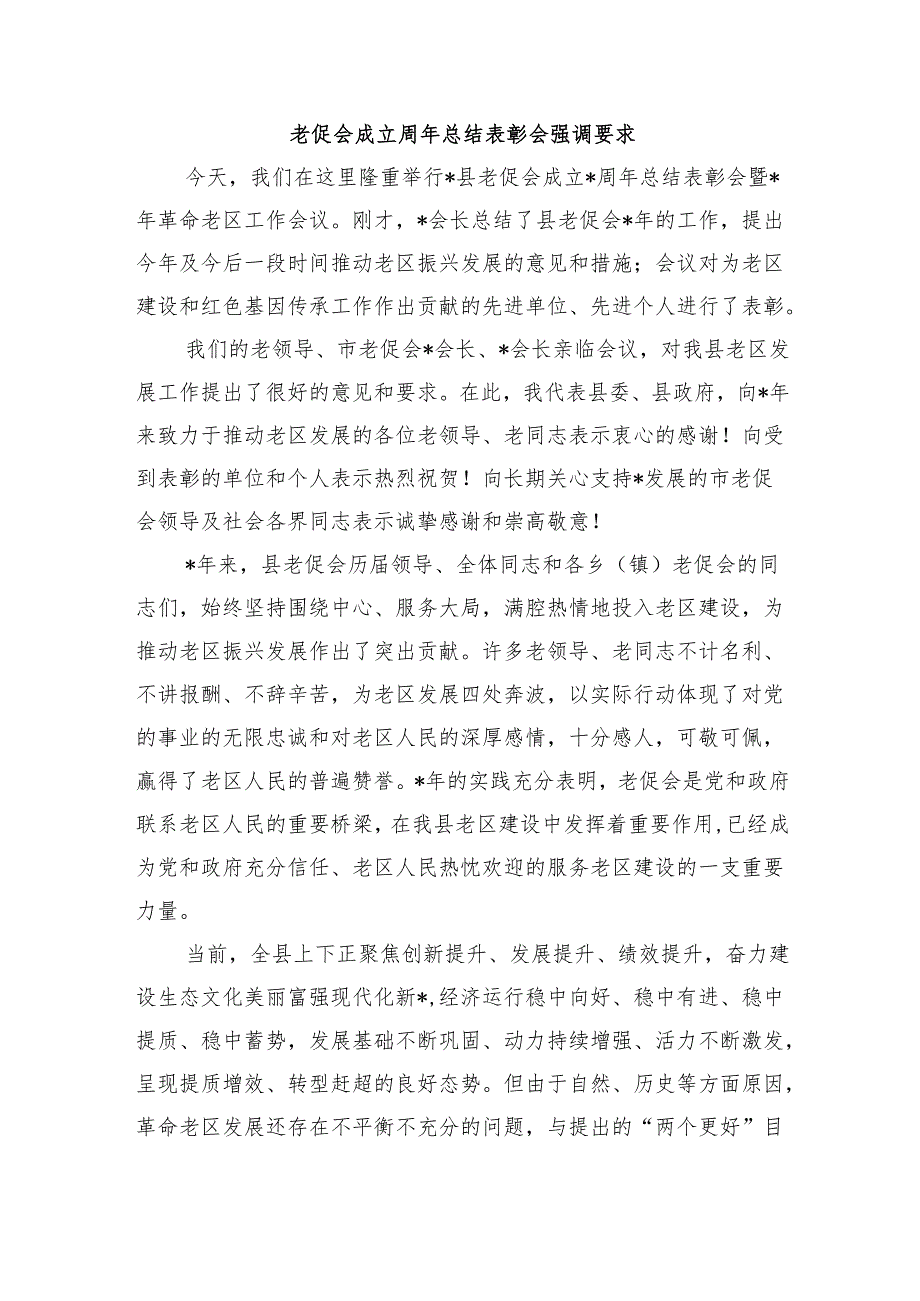 老促会成立周年总结表彰会强调要求
今天，我们在这里隆重举行*县老促会成立*周年总结表彰会暨*
年革命老区工作会议。刚才，*会长总结了县老促会*年的工作，提出
今年及今后一段时间推动老区振兴发展的意见和措施；会议对为老区
建设和红色基因传承工作作出贡献的先进单位、先进个人进行了表彰。
我们的老领导、市老促会*会长、*会长亲临会议，对我县老区发
展工作提出了很好的意见和要求。在此，我代表县委、县政府，向*年
来致力于推动老区发展的各位老领导、老同志表示衷心的感谢！向受
到表彰的单位和个人表示热烈祝贺！向长期关心支持*发展的市老促
会领导及社会各界同志表示诚挚感谢和崇高敬意！
*年来，县老促会历届领导、全体同志和各乡（镇）老促会的同
志们，始终坚持围绕中心、服务大局，满腔热情地投入老区建设，为
推动老区振兴发展作出了突出贡献。许多老领导、老同志不计名利、
不讲报酬、不辞辛苦，为老区发展四处奔波，以实际行动体现了对党
的事业的无限忠诚和对老区人民的深厚感情，十分感人，可敬可佩，
赢得了老区人民的普遍赞誉。*年的实践充分表明，老促会是党和政府
联系老区人民的重要桥梁，在我县老区建设中发挥着重要作用,已经成
为党和政府充分信任、老区人民热忱欢迎的服务老区建设的一支重要
力量。
当前，全县上下正聚焦创新提升、发展提升、绩效提升，奋力建
设生态文化美丽富强现代化新*,经济运行稳中向好、稳中有进、稳中
提质、稳中蓄势，发展基础不断巩固、动力持续增强、活力不断激发，
呈现提质增效、转型赶超的良好态势。但由于自然、历史等方面原因，
革命老区发展还存在不平衡不充分的问题，与提出的“两个更好”目